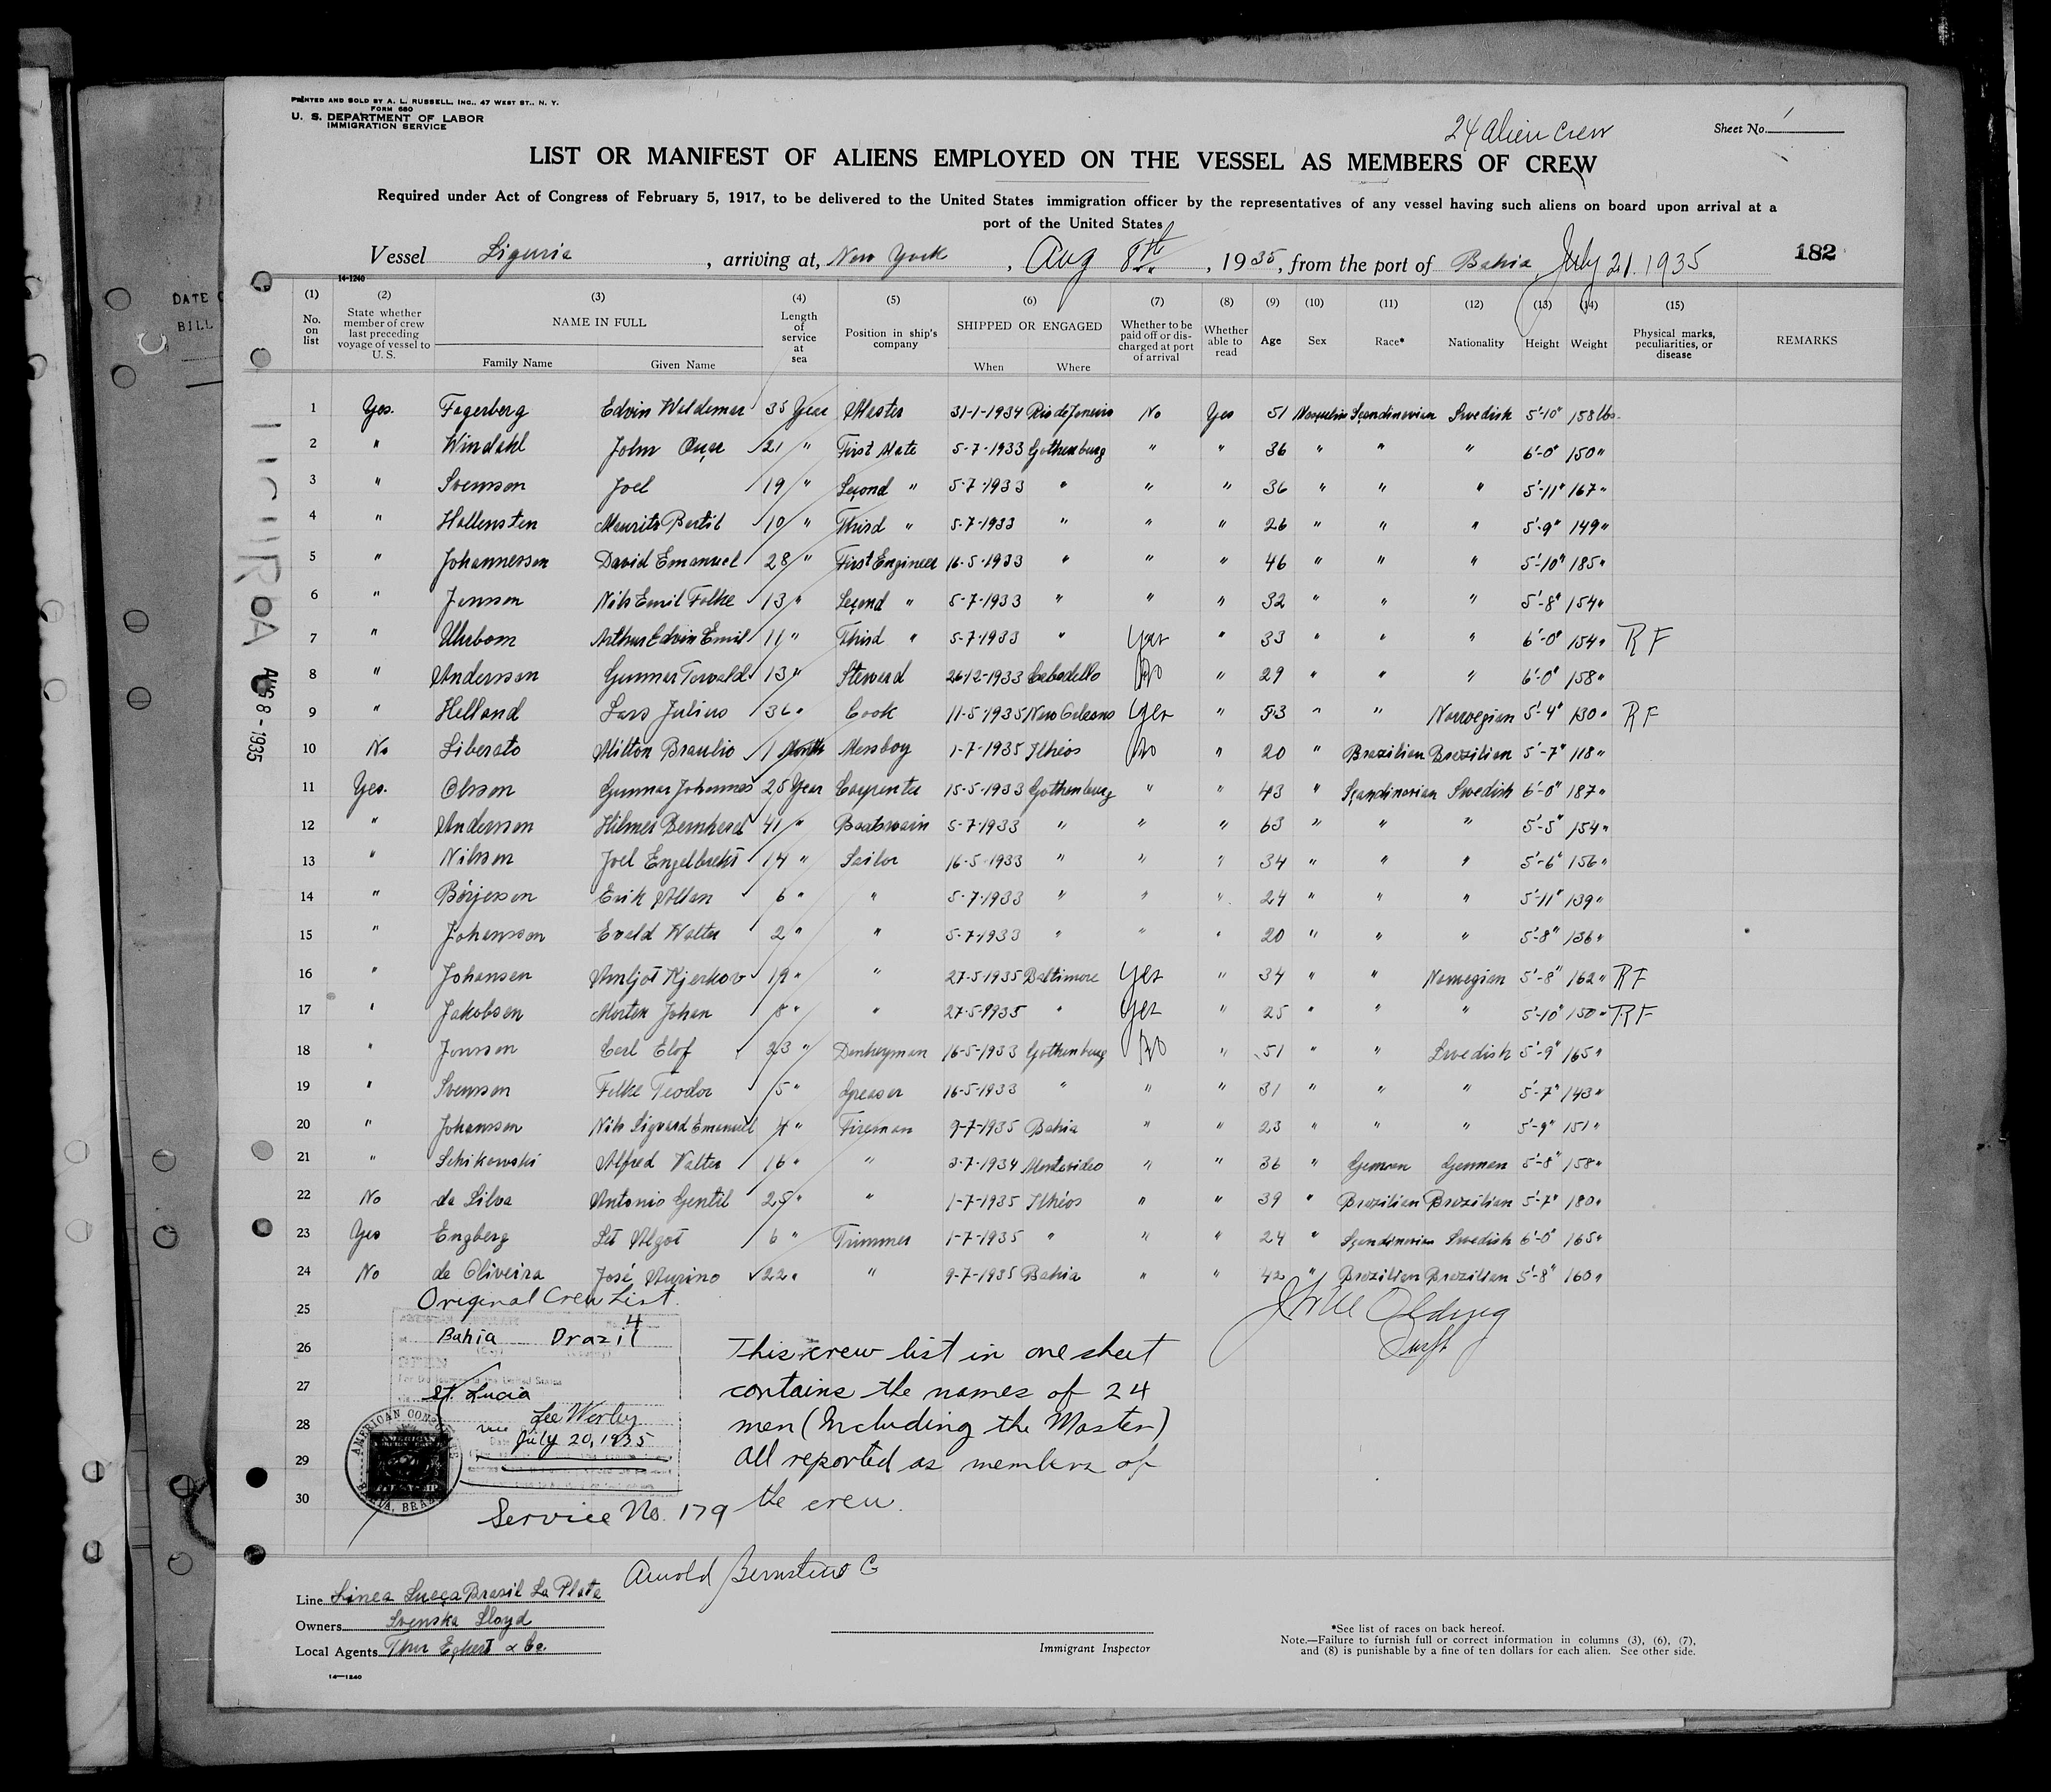 PRINTED AND SOLD BY A. L. RUSSELL, INC., 47 WEST ST., N. Y.
FORM 680
U. S. DEPARTMENT OF LABOR
IMMIGRATION SERVICE
24 alien crew
Sheet No. 1
LIST OR MANIFEST OF ALIENS EMPLOYED ON THE VESSEL AS MEMBERS OF CREW
Required under Act of Congress of February 5, 1917, to be delivered to the United States immigration officer by the representatives of any vessel having such aliens on board upon arrival at a
port of the United States
Vessel Liguria, arriving at, New York, Aug 8th, 1935, from the port of Bahia July 21 1935 182
14-1240
(1) (2) (3) (4) (5) (6) (7) (8) (9) (10) (11) (12) (13) (14) (15)
No. on list State whether member of crew last preceding voyage of vessel to U.S. NAME IN FULL Family Name Given Name Length of service at sea Position in ship's company SHIPPED OR ENGAGED When Where Whether to be paid off or discharged at port of arrival Whether able to read Age Sex Race* Nationality Height Weight Physical marks, peculiarities, or disease REMARKS
1 Yes. Fagerberg Edvin Waldemar 35 Year Master 31-1-1934 Rio de Janeiro No Yes 51 Masculin Scandinavian Swedish 5'-10" 158 lbs.
2 " Windahl John 21 " First Mate 5-7-1933 Gothenburg " " 36 " " " 6'-0" 150 "
3 " Svensson Joel 19 " Second " 5-7-1933 " " " 36 " " " 5'-11" 167 "
4 " Hallensten Maurits Bertil 10 " Third " 5-7-1933 " " " 26 " " " 5'-9" 149 "
5 " Johannesson David Emanuel 28 " First Engineer 16-5-1933 " " " 46 " " " 5'-10" 185 "
6 " Jonsson Nils Emil Folke 13 " Second " 5-7-1933 " " " 32 " " " 5'-8" 154 "
7 " Uhrbom Arthur Edvin Emil 11 " Third " 5-7-1933 " Yes " 33 " " " 6'-0" 154 " R F
8 " Andersson Gunnar Torvald 13 " Steward 26-12-1933 Cabedello No " 29 " " " 6'-0" 158 "
9 " Helland Lars Julius 36 " Cook 11-5-1935 New Orleans Yes " 53 " " Norwegian 5'-4" 130 " R F
10 No Liberato Milton Braulio 1 Month Messboy 1-7-1935 Ilhéos No " 20 " Brazilian Brazilian 5'-7" 118 "
11 Yes. Olsson Gunnar Johannes 25 Year Carpenter 15-5-1933 Gothenburg " " 43 " Scandinavian Swedish 6'-0" 187 "
12 " Andersson Hilmer Bernhard 41 " Boatswain 5-7-1933 " " " 63 " " " 5'-5" 154 "
13 " Nilsson Joel Engelbrekt 14 " Sailor 16-5-1933 " " " 34 " " " 5'-6" 156 "
14 " Börjesson Erik Allan 6 " " 5-7-1933 " " " 24 " " " 5'-11" 139 "
15 " Johansson Evald Walter 2 " " 5-7-1933 " " " 20 " " " 5'-8" 136 "
16 " Johansen Arnljot Kjerkov 19 " " 27-5-1935 Baltimore Yes " 34 " " Norwegian 5'-8" 162 " R F
17 " Jakobsen Morten Johan 8 " " 27-5-1935 " Yes " 25 " " " 5'-10" 150 " R F
18 " Jonsson Carl Elof 33 " Donkeyman 16-5-1933 Gothenburg No " 51 " " Swedish 5'-9" 165 "
19 " Svensson Folke Teodor 5 " Greaser 16-5-1933 " " " 31 " " " 5'-7" 143 "
20 " Johansson Nils Sigvard Emanuel 4 " Fireman 9-7-1935 Bahia " " 23 " " " 5'-9" 151 "
21 " Schikowski Alfred Valter 16 " " 3-7-1934 Montevideo " " 36 " German German 5'-8" 158 "
22 No da Silva Antonio Gentil 25 " " 1-7-1935 Ilhéos " " 39 " Brazilian Brazilian 5'-7" 180 "
23 Yes Engberg Set Algot 6 " Trimmer 1-7-1935 " " " 24 " Scandinavian Swedish 6'-0" 165 "
24 No de Oliveira José Aurino 22 " " 9-7-1935 Bahia " " 42 " Brazilian Brazilian 5'-8" 160 "
25 Original Crew List
4
Bahia Brazil
26
27
28
29
30
St. Lucia
Lee Worley
July 20, 1935
AMERICAN CONSULATE
BAHIA, BRAZIL
Service No. 179
This crew list in one sheet
contains the names of 24
men (Including the Master)
all reported as members of
the crew.
Arnold Bernstein
Line Linea Sueca Brasil La Plata
Owners Svenska Lloyd
Local Agents Thor Eckert & Co.
14—1240
Immigrant Inspector
*See list of races on back hereof.
Note.—Failure to furnish full or correct information in columns (3), (6), (7),
and (8) is punishable by a fine of ten dollars for each alien. See other side.
AUG 8 - 1935
DATE
BILL